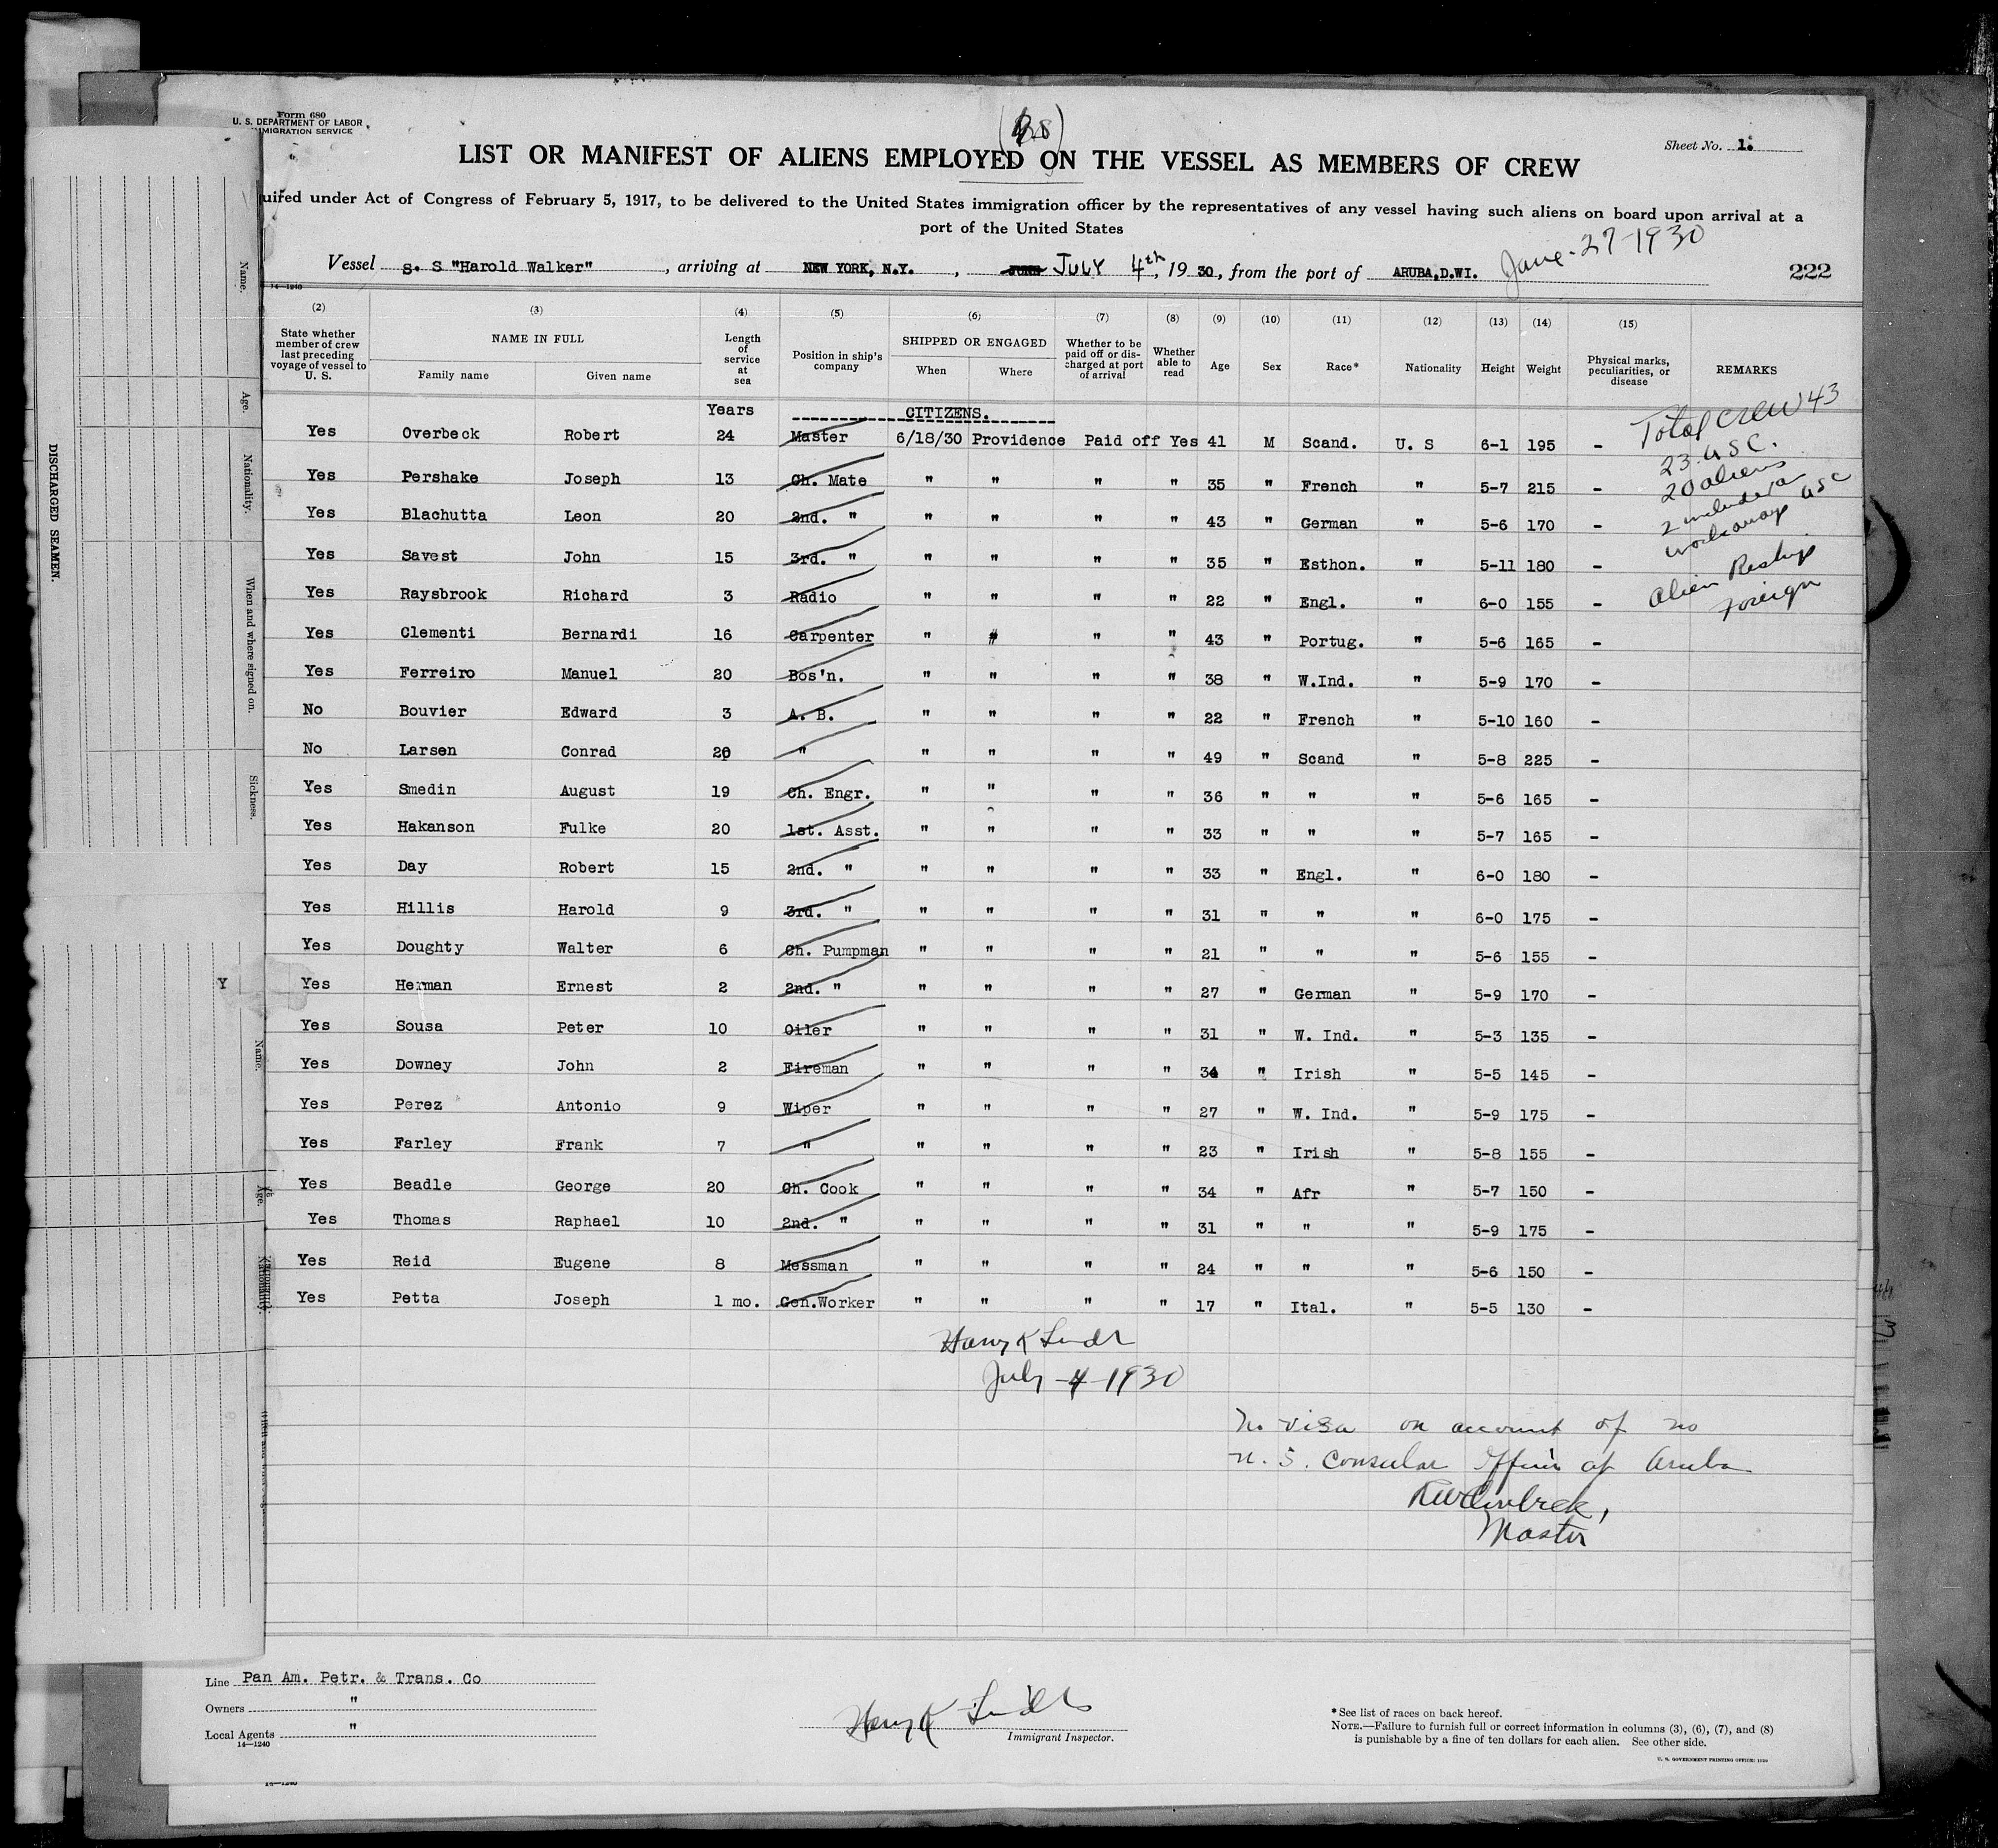 Form 680
U. S. DEPARTMENT OF LABOR
IMMIGRATION SERVICE
Sheet No. 1.
LIST OR MANIFEST OF ALIENS EMPLOYED ON THE VESSEL AS MEMBERS OF CREW
uired under Act of Congress of February 5, 1917, to be delivered to the United States immigration officer by the representatives of any vessel having such aliens on board upon arrival at a
port of the United States
June-27-1930
Vessel S. S "Harold Walker", arriving at NEW YORK, N.Y., JULY 4th, 1930, from the port of ARUBA, D.WI.
222
14—1240
(2) (3) (4) (5) (6) (7) (8) (9) (10) (11) (12) (13) (14) (15)
State whether member of crew last preceding voyage of vessel to U. S. NAME IN FULL Family name Given name Length of service at sea Position in ship's company SHIPPED OR ENGAGED When Where Whether to be paid off or discharged at port of arrival Whether able to read Age Sex Race* Nationality Height Weight Physical marks, peculiarities, or disease REMARKS
Years CITIZENS.
Yes Overbeck Robert 24 Master 6/18/30 Providence Paid off Yes 41 M Scand. U. S 6-1 195 -
Yes Pershake Joseph 13 Ch. Mate " " " " 35 " French " 5-7 215 -
Yes Blachutta Leon 20 2nd. " " " " " 43 " German " 5-6 170 -
Yes Savest John 15 3rd. " " " " " 35 " Esthon. " 5-11 180 -
Yes Raysbrook Richard 3 Radio " " " " 22 " Engl. " 6-0 155 -
Yes Clementi Bernardi 16 Carpenter " " " " 43 " Portug. " 5-6 165 -
Yes Ferreiro Manuel 20 Bos'n. " " " " 38 " W.Ind. " 5-9 170 -
No Bouvier Edward 3 A. B. " " " " 22 " French " 5-10 160 -
No Larsen Conrad 20 " " " " " 49 " Scand " 5-8 225 -
Yes Smedin August 19 Ch. Engr. " " " " 36 " " " 5-6 165 -
Yes Hakanson Fulke 20 1st. Asst. " " " " 33 " " " 5-7 165 -
Yes Day Robert 15 2nd. " " " " " 33 " Engl. " 6-0 180 -
Yes Hillis Harold 9 3rd. " " " " " 31 " " " 6-0 175 -
Yes Doughty Walter 6 Ch. Pumpman " " " " 21 " " " 5-6 155 -
Yes Herman Ernest 2 2nd. " " " " " 27 " German " 5-9 170 -
Yes Sousa Peter 10 Oiler " " " " 31 " W. Ind. " 5-3 135 -
Yes Downey John 2 Fireman " " " " 34 " Irish " 5-5 145 -
Yes Perez Antonio 9 Wiper " " " " 27 " W. Ind. " 5-9 175 -
Yes Farley Frank 7 " " " " " 23 " Irish " 5-8 155 -
Yes Beadle George 20 Ch. Cook " " " " 34 " Afr " 5-7 150 -
Yes Thomas Raphael 10 2nd. " " " " " 31 " " " 5-9 175 -
Yes Reid Eugene 8 Messman " " " " 24 " " " 5-6 150 -
Yes Petta Joseph 1 mo. Gen.Worker " " " " 17 " Ital. " 5-5 130 -
Total crew 43
23. USC.
20 aliens
2 included as
workaways USC
Alien Reship
Foreign
July-4-1930
No visa on account of no
U. S. Consular Officer at Aruba
Master
Line Pan Am. Petr. & Trans. Co
Owners "
Local Agents "
14—1240
Immigrant Inspector.
*See list of races on back hereof.
NOTE.—Failure to furnish full or correct information in columns (3), (6), (7), and (8)
is punishable by a fine of ten dollars for each alien. See other side.
DISCHARGED SEAMEN.
Name.
Age.
Nationality.
When and where signed on.
Sickness.
Y
Name.
Age.